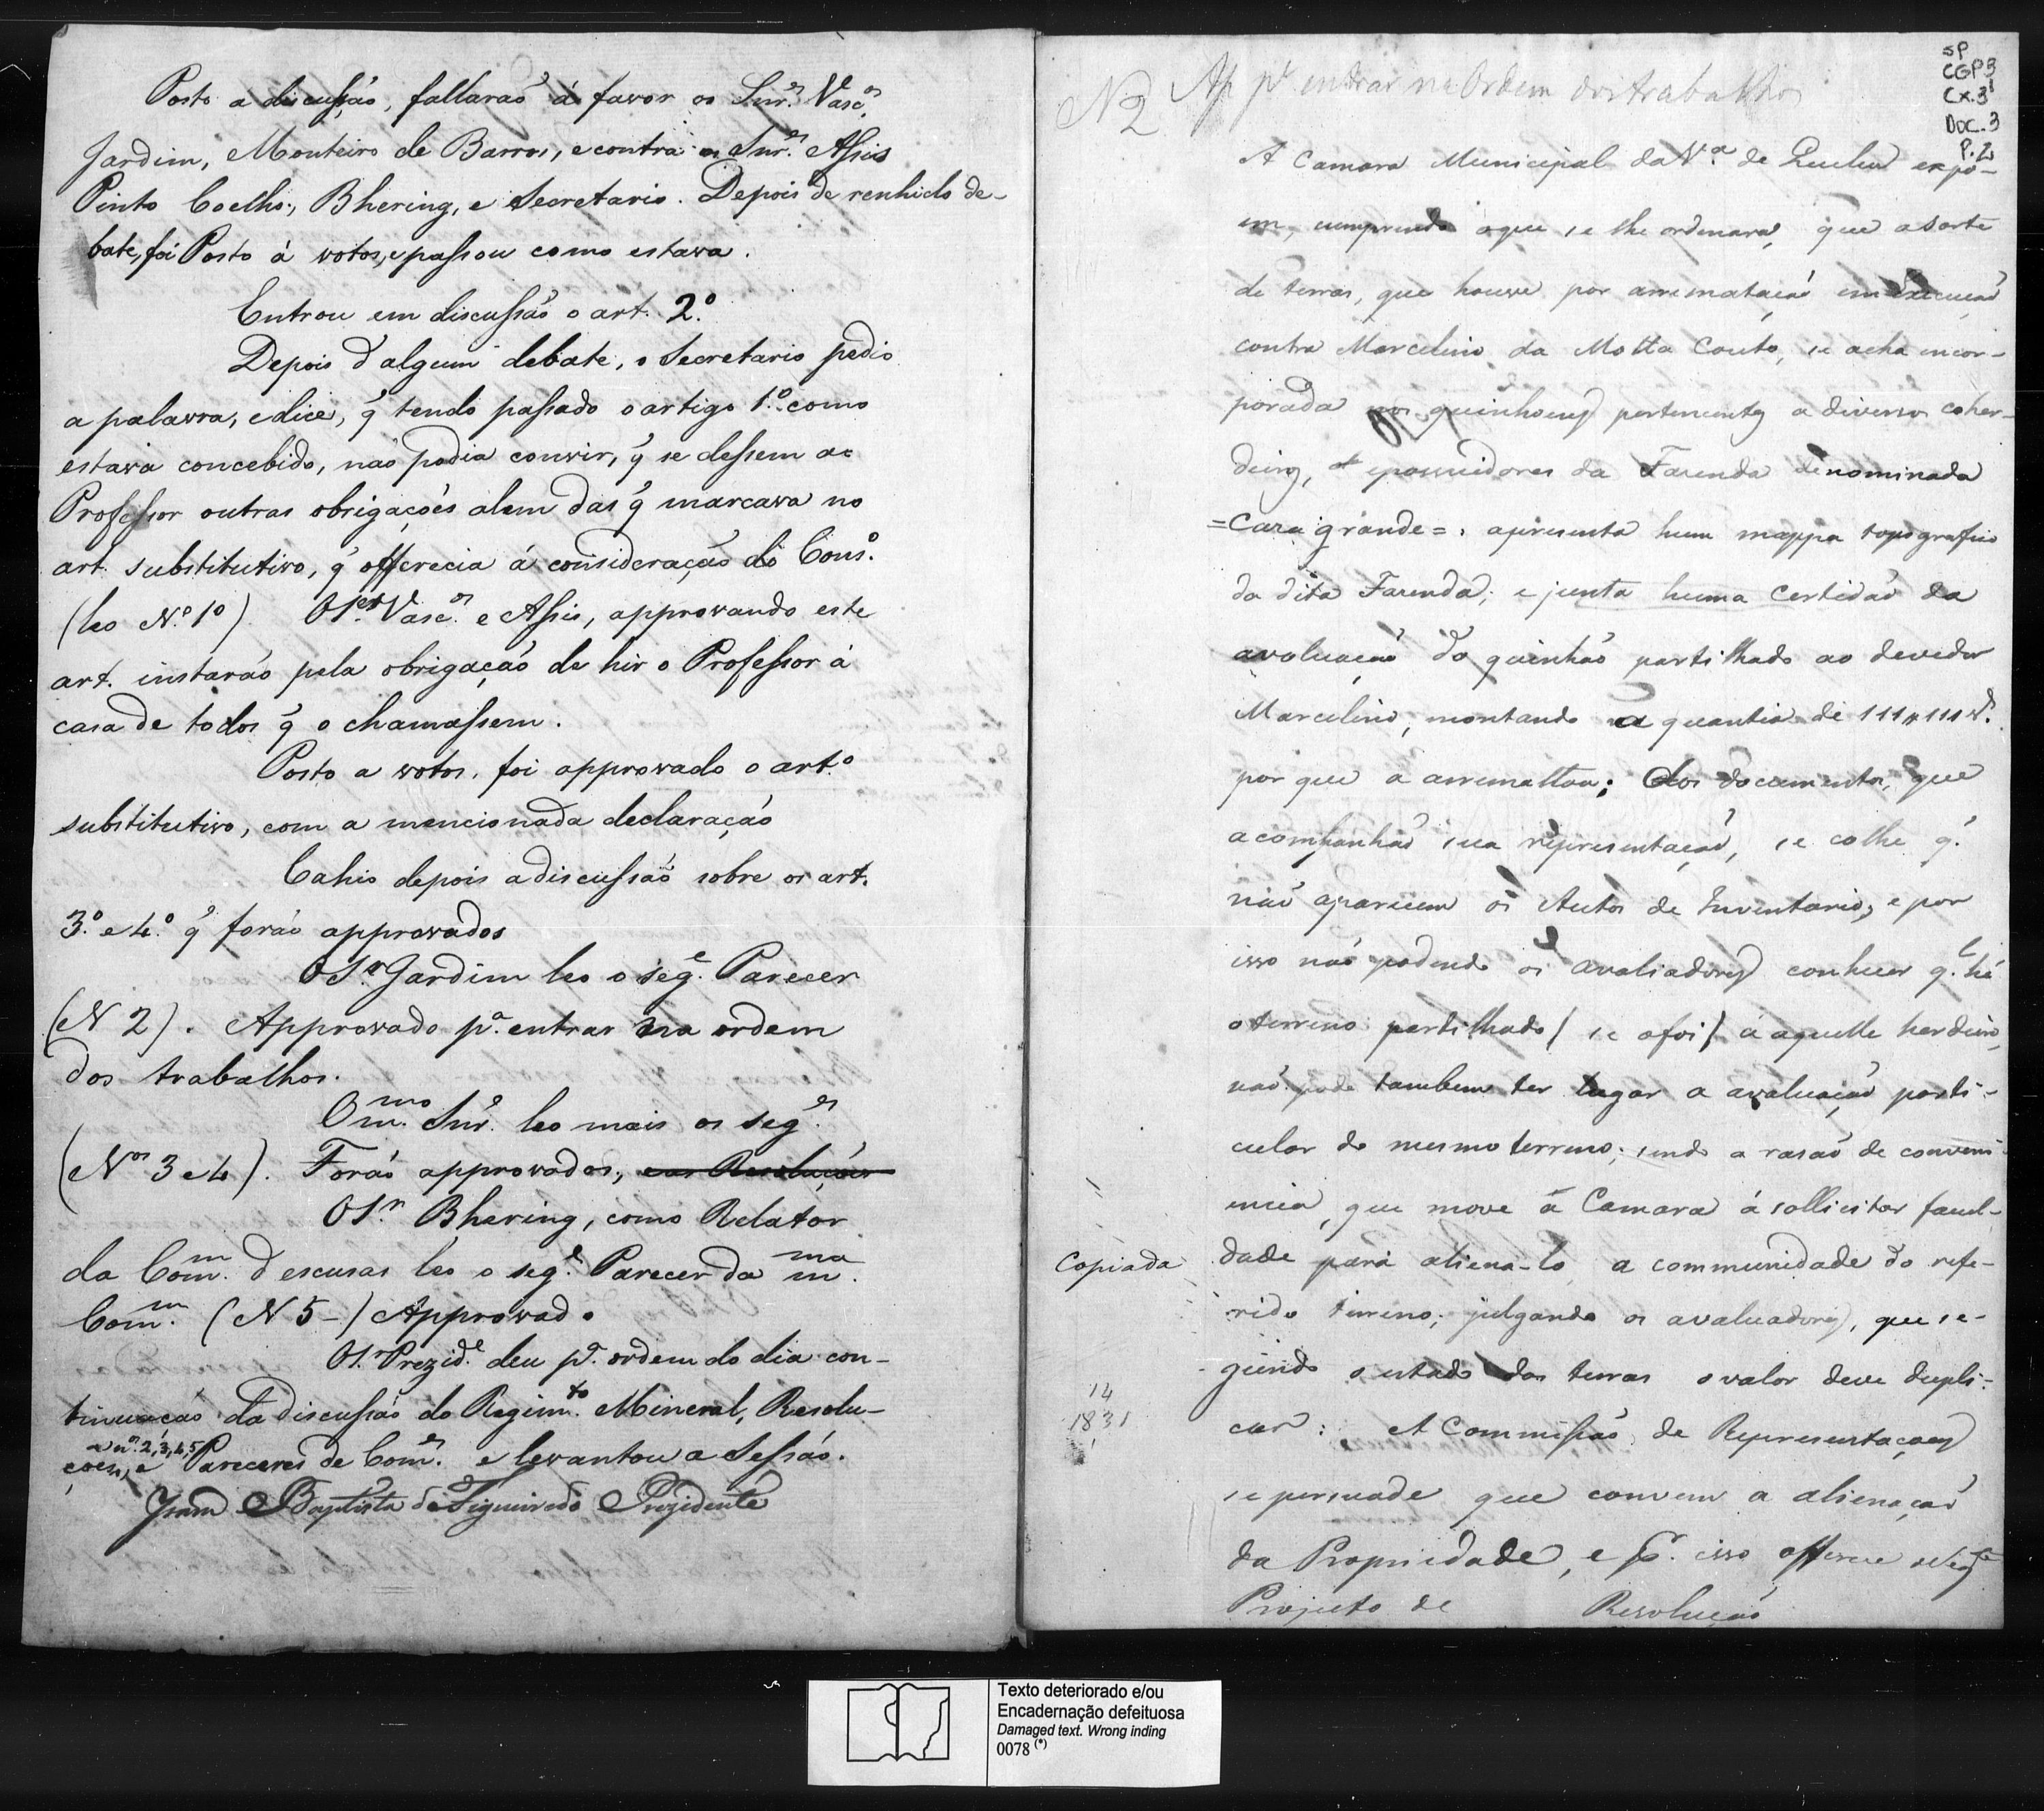 Posto a discussão, fallarão á favor os Snr.es Vasc.os
Jardim, Monteiro de Barros, e contra os Snr.es Assis
Pinto Coelho, Bhering, e Secretario. Depois de renhido de-
bate, foi Posto á votos, e passou como estava.
Entrou em discussão o art. 2.º
Depois d'algum debate, o Secretario pedio
a palavra, e dice, q̃ tendo passado o artigo 1.º como
estava concebido, não podia convir, q̃ se dessem ao
Professor outras obrigações alem das q̃ marcava no
art. substitutivo, q̃ offerecia á consideração do Cons.º
(leo N.º 1º) Os Sr.es Vasc.os e Assis, approvando este
art. instarão pela obrigação de hir o Professor á
casa de todos q̃ o chamassem.
Posto a votos, foi approvado o art.º
substitutivo, com a mencionada declaração
Cahio depois a discussão sobre os art.
3.º e 4.º q̃ forão approvados
O Sr. Jardim leo o seg.e Parecer
(N 2). Approvado p.a entrar na ordem
dos trabalhos.
O m.mo Snr. leo mais os seg.es
(N.os 3 e 4). Forão approvados, e as Resoluções
O Sr. Bhering, como Relator
da Com.m d'escusas leo o seg.e Parecer da m.ma
Com.m (N 5-) Approvado
O Sr. Prezid.e deu p.a ordem do dia con-
tinuação da discussão do Regim.to Mineral, Resolu-
ções, e Pareceres de Com.es e levantou a Sessão.
a n.os 2,3,4,5
João Baptista de Figueiredo Prezidente
SP
CGP 3
Cx. 31
Doc. 3
P. 2
N 2 Ap p.a entrar na Ordem dos trabalhos
A Camara Municipal da V.a de Queluz expo-
em, cumprindo o que se lhe ordenara, que a sorte
de terras, que houve por arrematação em execução
contra Marcelino da Motta Couto, se acha incor-
porada nos quinhoens pertencentes a diversos coher-
deiros, e possuidores da Fazenda denominada
=Caza grande=, apresenta hum mappa topografico
da dita Fazenda; e junta huma Certidão da
avaluação do quinhão partilhado ao devedor
Marcelino, montando a quantia de 111//111 r.s
por que a arrematou; dos documentos, que
acompanhão sua representação, se colhe q.
não aparecem os Autos de Inventario, e por
isso não podendo os avaliadores conhecer q.l hé
o terreno partilhado (se o foi) á aquelle herdeiro,
não pode tambem ter lugar a avaluação parti-
cular do mesmo terreno; sendo a rasão de conveni-
encia, que move á Camara á sollicitar facul-
Copiada
dade para aliena-lo a communidade do refe-
rido terreno; julgando os avaluadores, que se-
gundo o estado das terras o valor deve dupli-
14
1831
car: A Commissão de Representaçoens
se persuade que convem a alienação
da Propriedade, e p.r isso offerece o seg.e
Projecto de Resolução
Texto deteriorado e/ou
Encadernação defeituosa
Damaged text. Wrong inding
0078 (*)